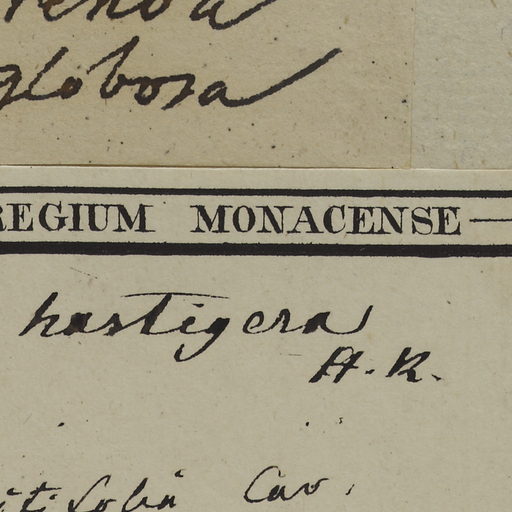 globosa
REGIUM MONACENSE
hastigera
H. K.
Cav.